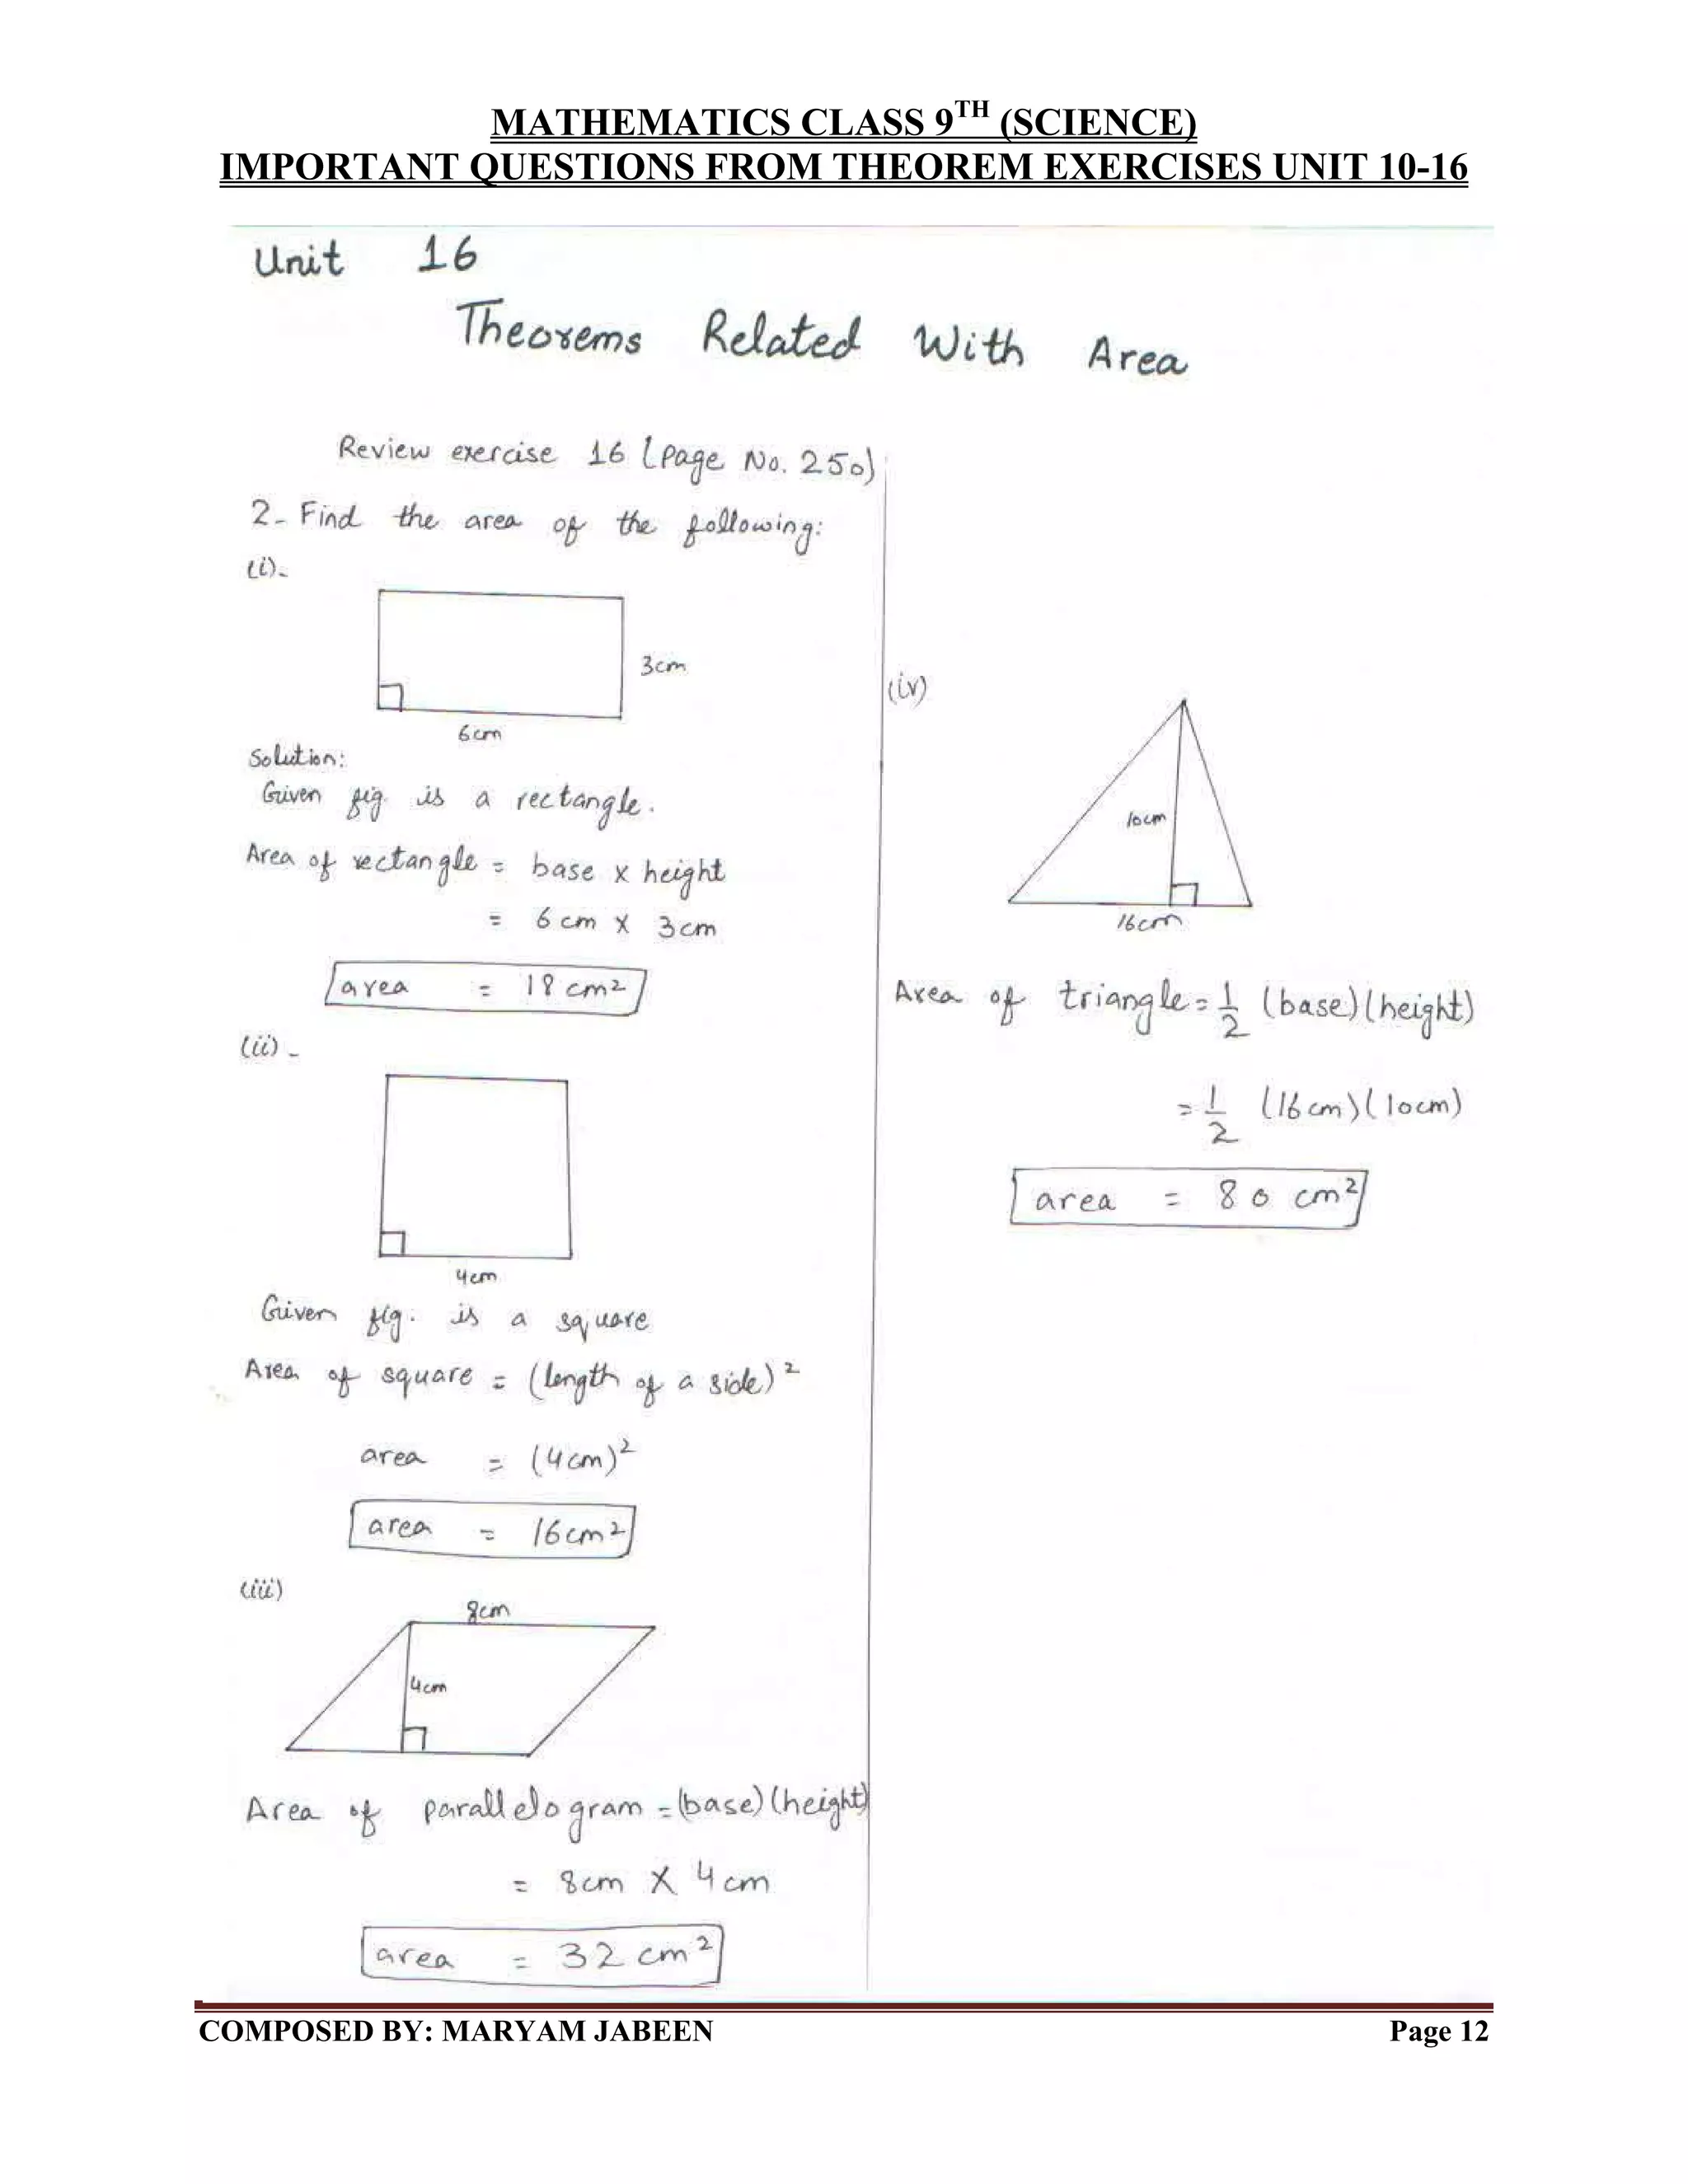 MATHEMATICS CLASS 9TH (SCIENCE)
IMPORTANT QUESTIONS FROM THEOREM EXERCISES UNIT 10-16
Unit 16
Theorems Related With Area
Review exercise 16 (Page No. 250)
2- Find the area of the following:
(i)-
3cm
6cm
Solution:
Given fig. is a rectangle.
Area of rectangle = base x height
= 6 cm x 3cm
area = 18 cm²
(ii) -
4cm
Given fig. is a square
Area of square = (length of a side)²
area = (4cm)²
area = 16cm²
(iii)
8cm
4cm
Area of parallelogram = (base)(height)
= 8cm X 4cm
area = 32 cm²
(iv)
10cm
16cm
Area of triangle = 1/2 (base)(height)
= 1/2 (16cm)(10cm)
area = 80 cm²
COMPOSED BY: MARYAM JABEEN Page 12